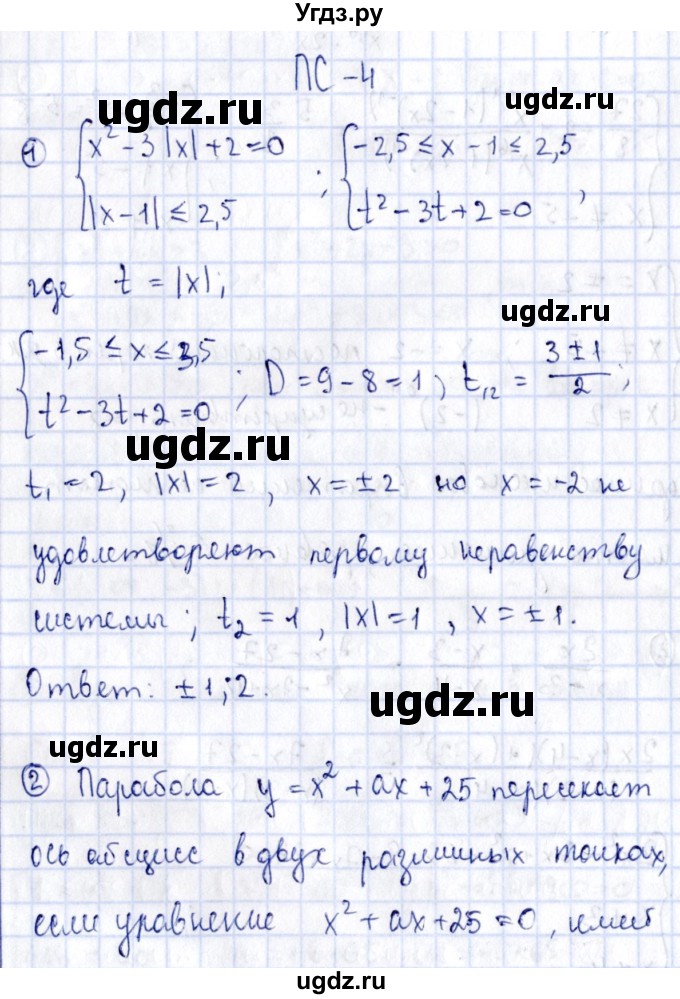 Угдз.ру
ПС-4
ugdz.ru ugdz.ru
① { x² - 3|x| + 2 = 0 ; { -2,5 ≤ x - 1 ≤ 2,5
|x-1| ≤ 2,5 t² - 3t + 2 = 0 ,
ugdz.ru
где t = |x|;
ugdz.ru
{ -1,5 ≤ x ≤ 3,5 ; D = 9 - 8 = 1, t₁,₂ = (3 ± 1)/2 ;
t² - 3t + 2 = 0
ugdz.ru
t₁ = 2, |x| = 2, x = ±2 но x = -2 не
удовлетворяют первому неравенству
ugdz.ru
системы; t₂ = 1, |x| = 1, x = ±1.
Ответ: ±1; 2.
ugdz.ru
ugdz.ru
② Парабола y = x² + ax + 25 пересекает
ось абсцисс в двух различных точках,
ugdz.ru
если уравнение x² + ax + 25 = 0, имеет
ugdz.ru